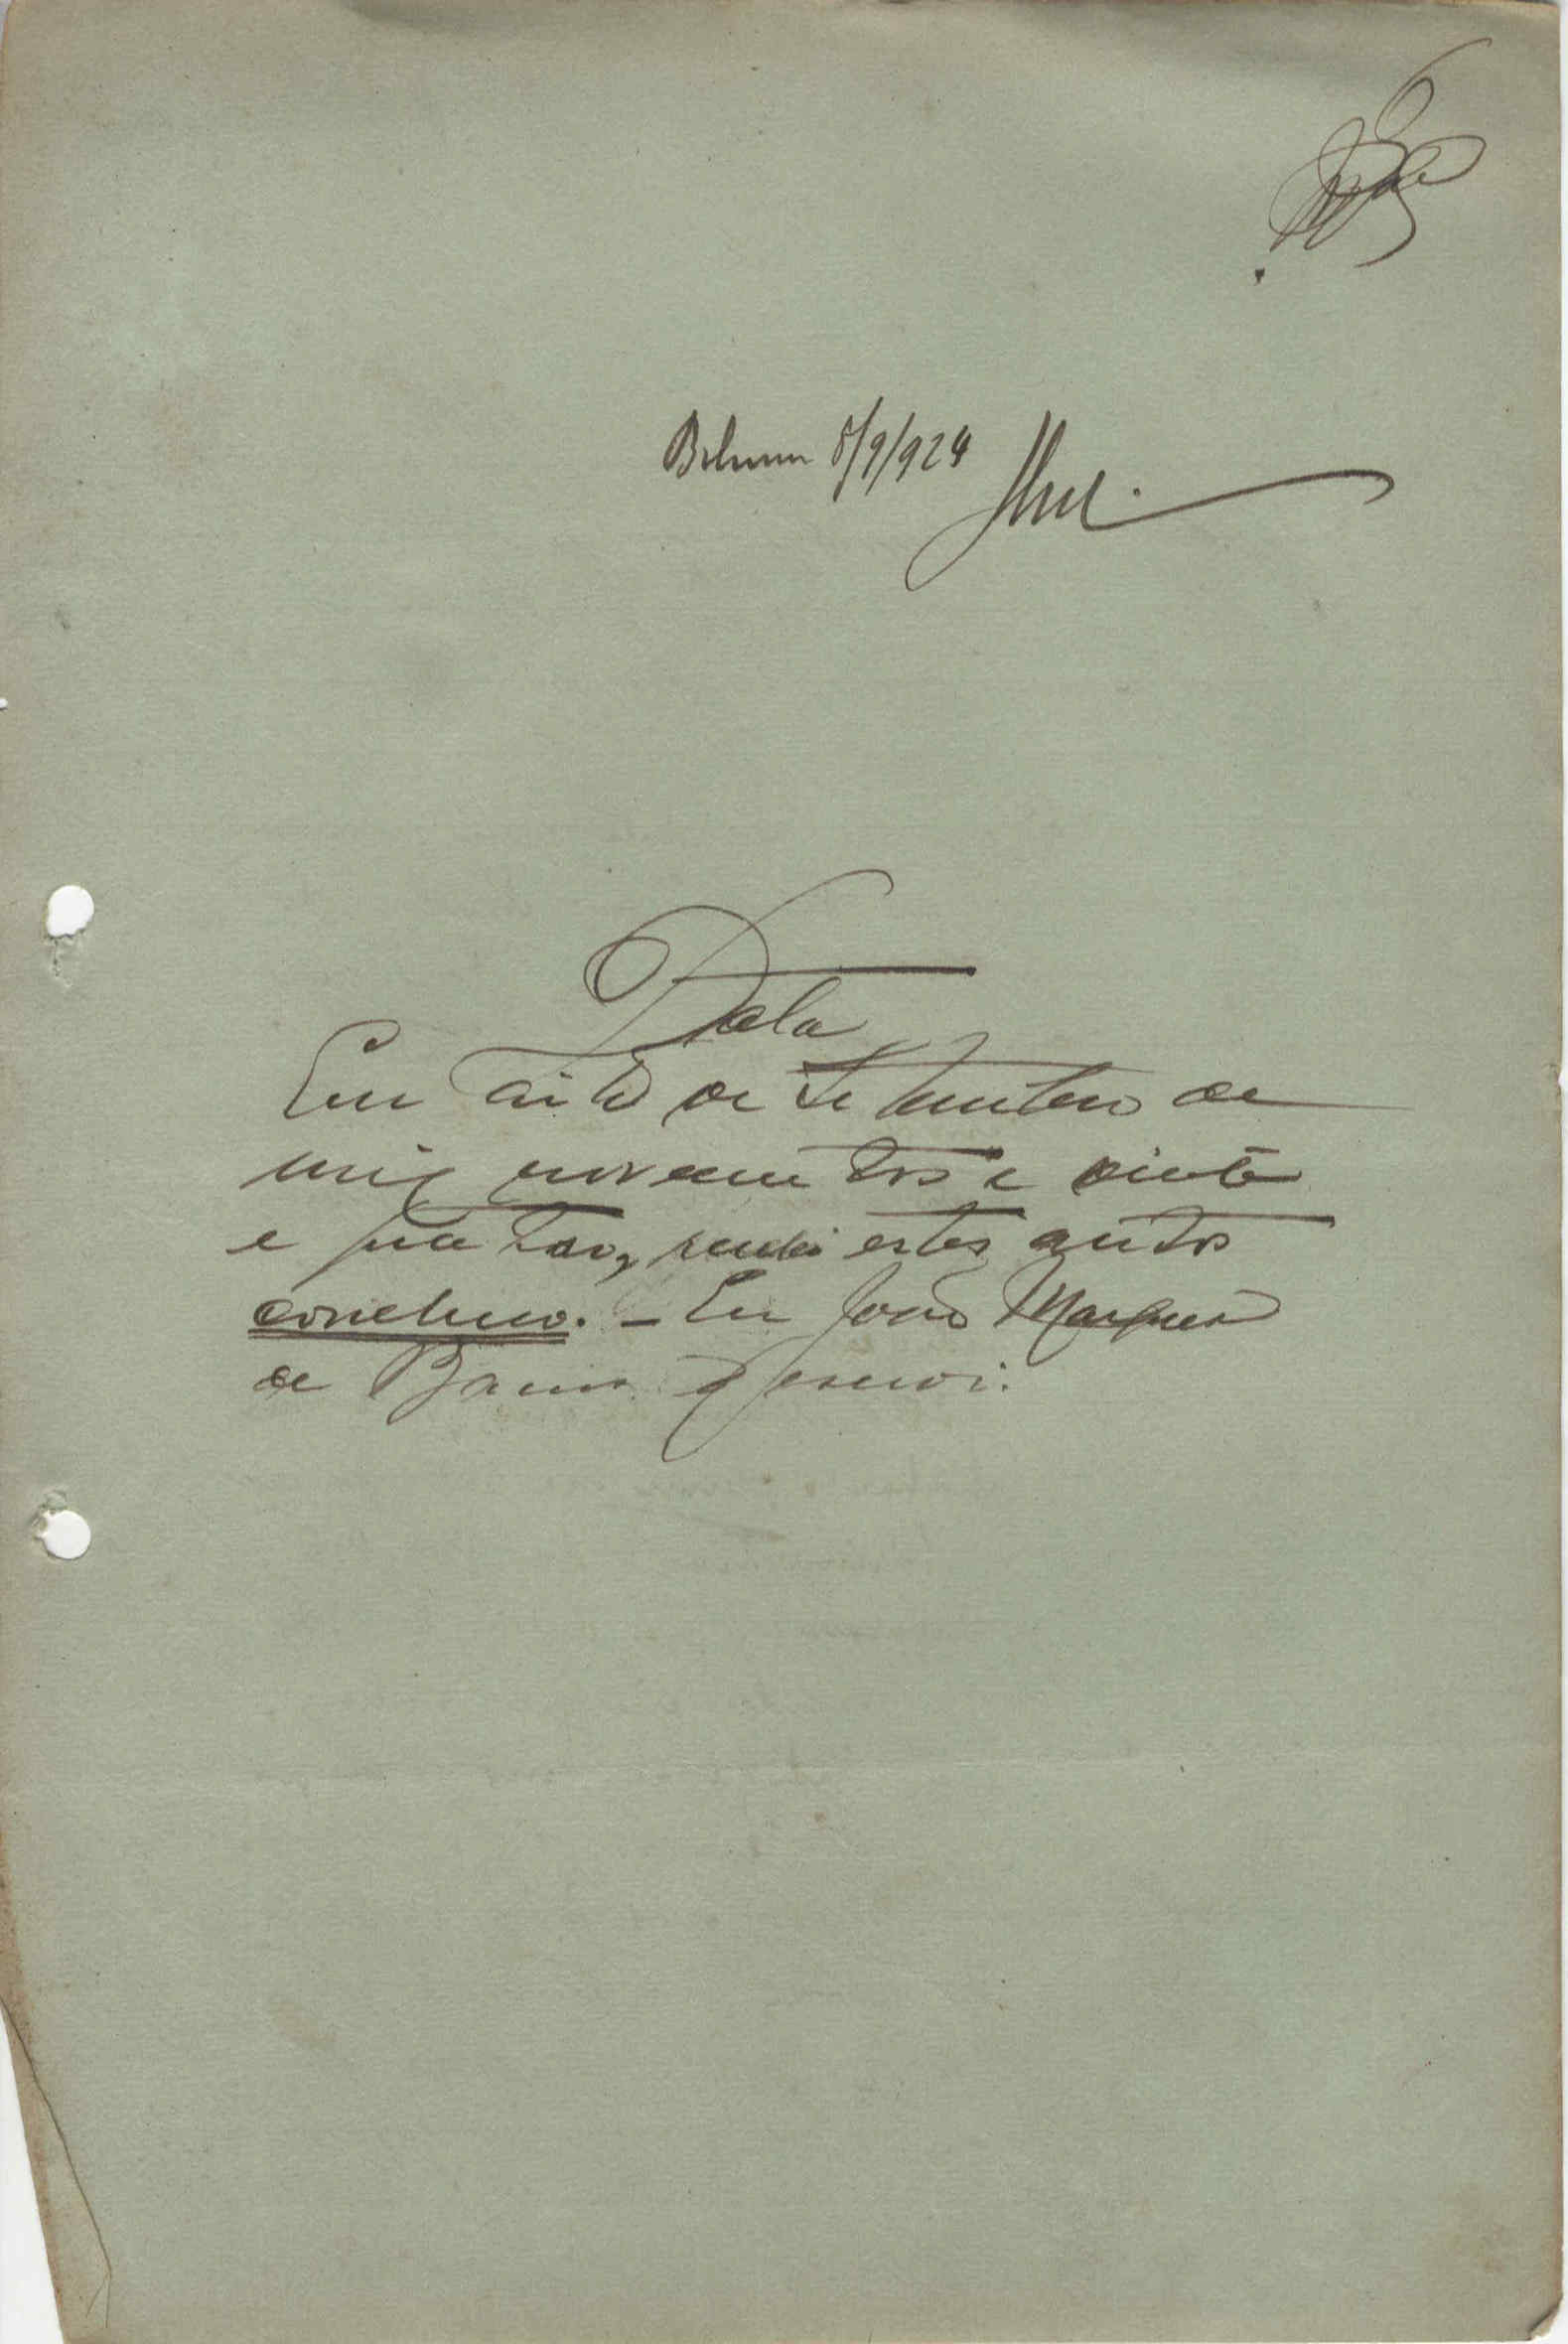 8/9/924
Data
Em oito de Setembro de
mil novecentos e vinte
e quatro, estes autos
concluso. — Eu João Marques
de Barros escrevi.